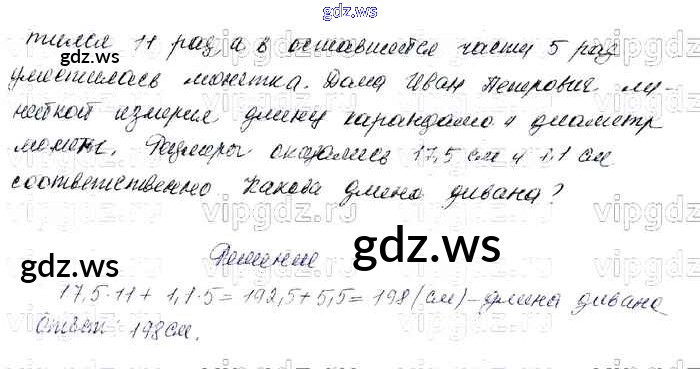 gdz.ws
тился 11 раз, а в оставшейся части 5 раз
уместилась монетка. Дома Иван Петрович ли-
нейкой измерил длину карандаша и диаметр
монеты. Размеры оказались 17,5 см и 1,1 см
соответственно Какова длина дивана?
gdz.ws
Решение
gdz.ws
17,5·11 + 1,1·5 = 192,5 + 5,5 = 198 (см) - длина дивана
Ответ: 198 см.
gdz.ws
gdz.ws